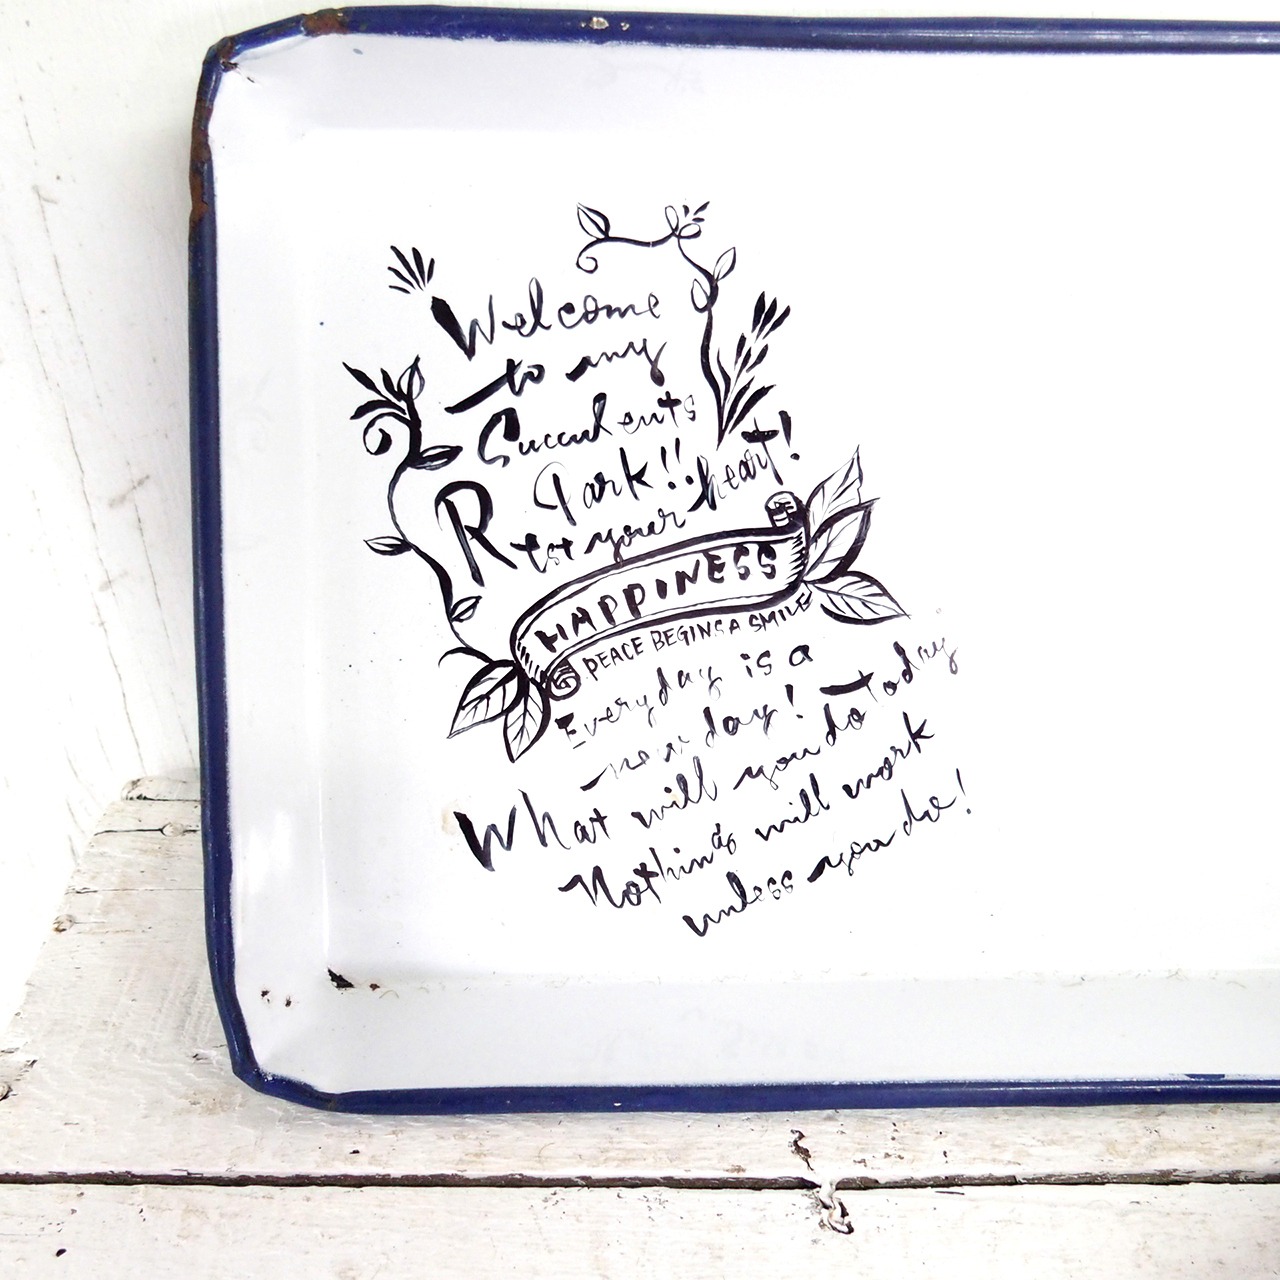 Welcome
to my
Succulents
Park!!
Rest your heart!
HAPPINESS
PEACE BEGINS A SMILE
Everyday is a
new day!
What will you do Today
Nothing will work
unless you do!